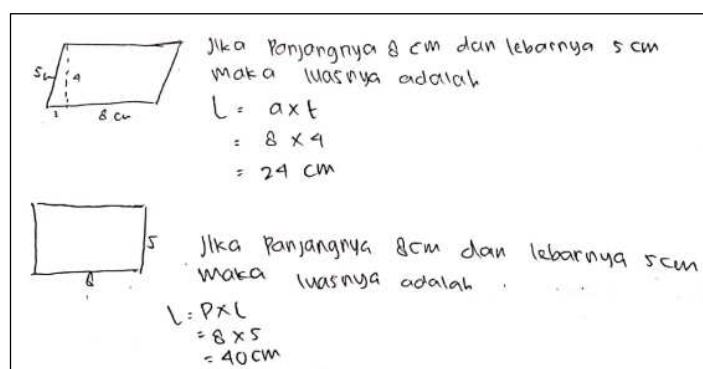 Jika Panjangnya 8 cm dan lebarnya 5 cm
maka luasnya adalah
L = a x t
= 8 x 4
= 24 cm
5
4
8 cm
Jika Panjangnya 8cm dan lebarnya 5cm
maka luasnya adalah . . . .
L = P x L
= 8 x 5
= 40 cm
5
8